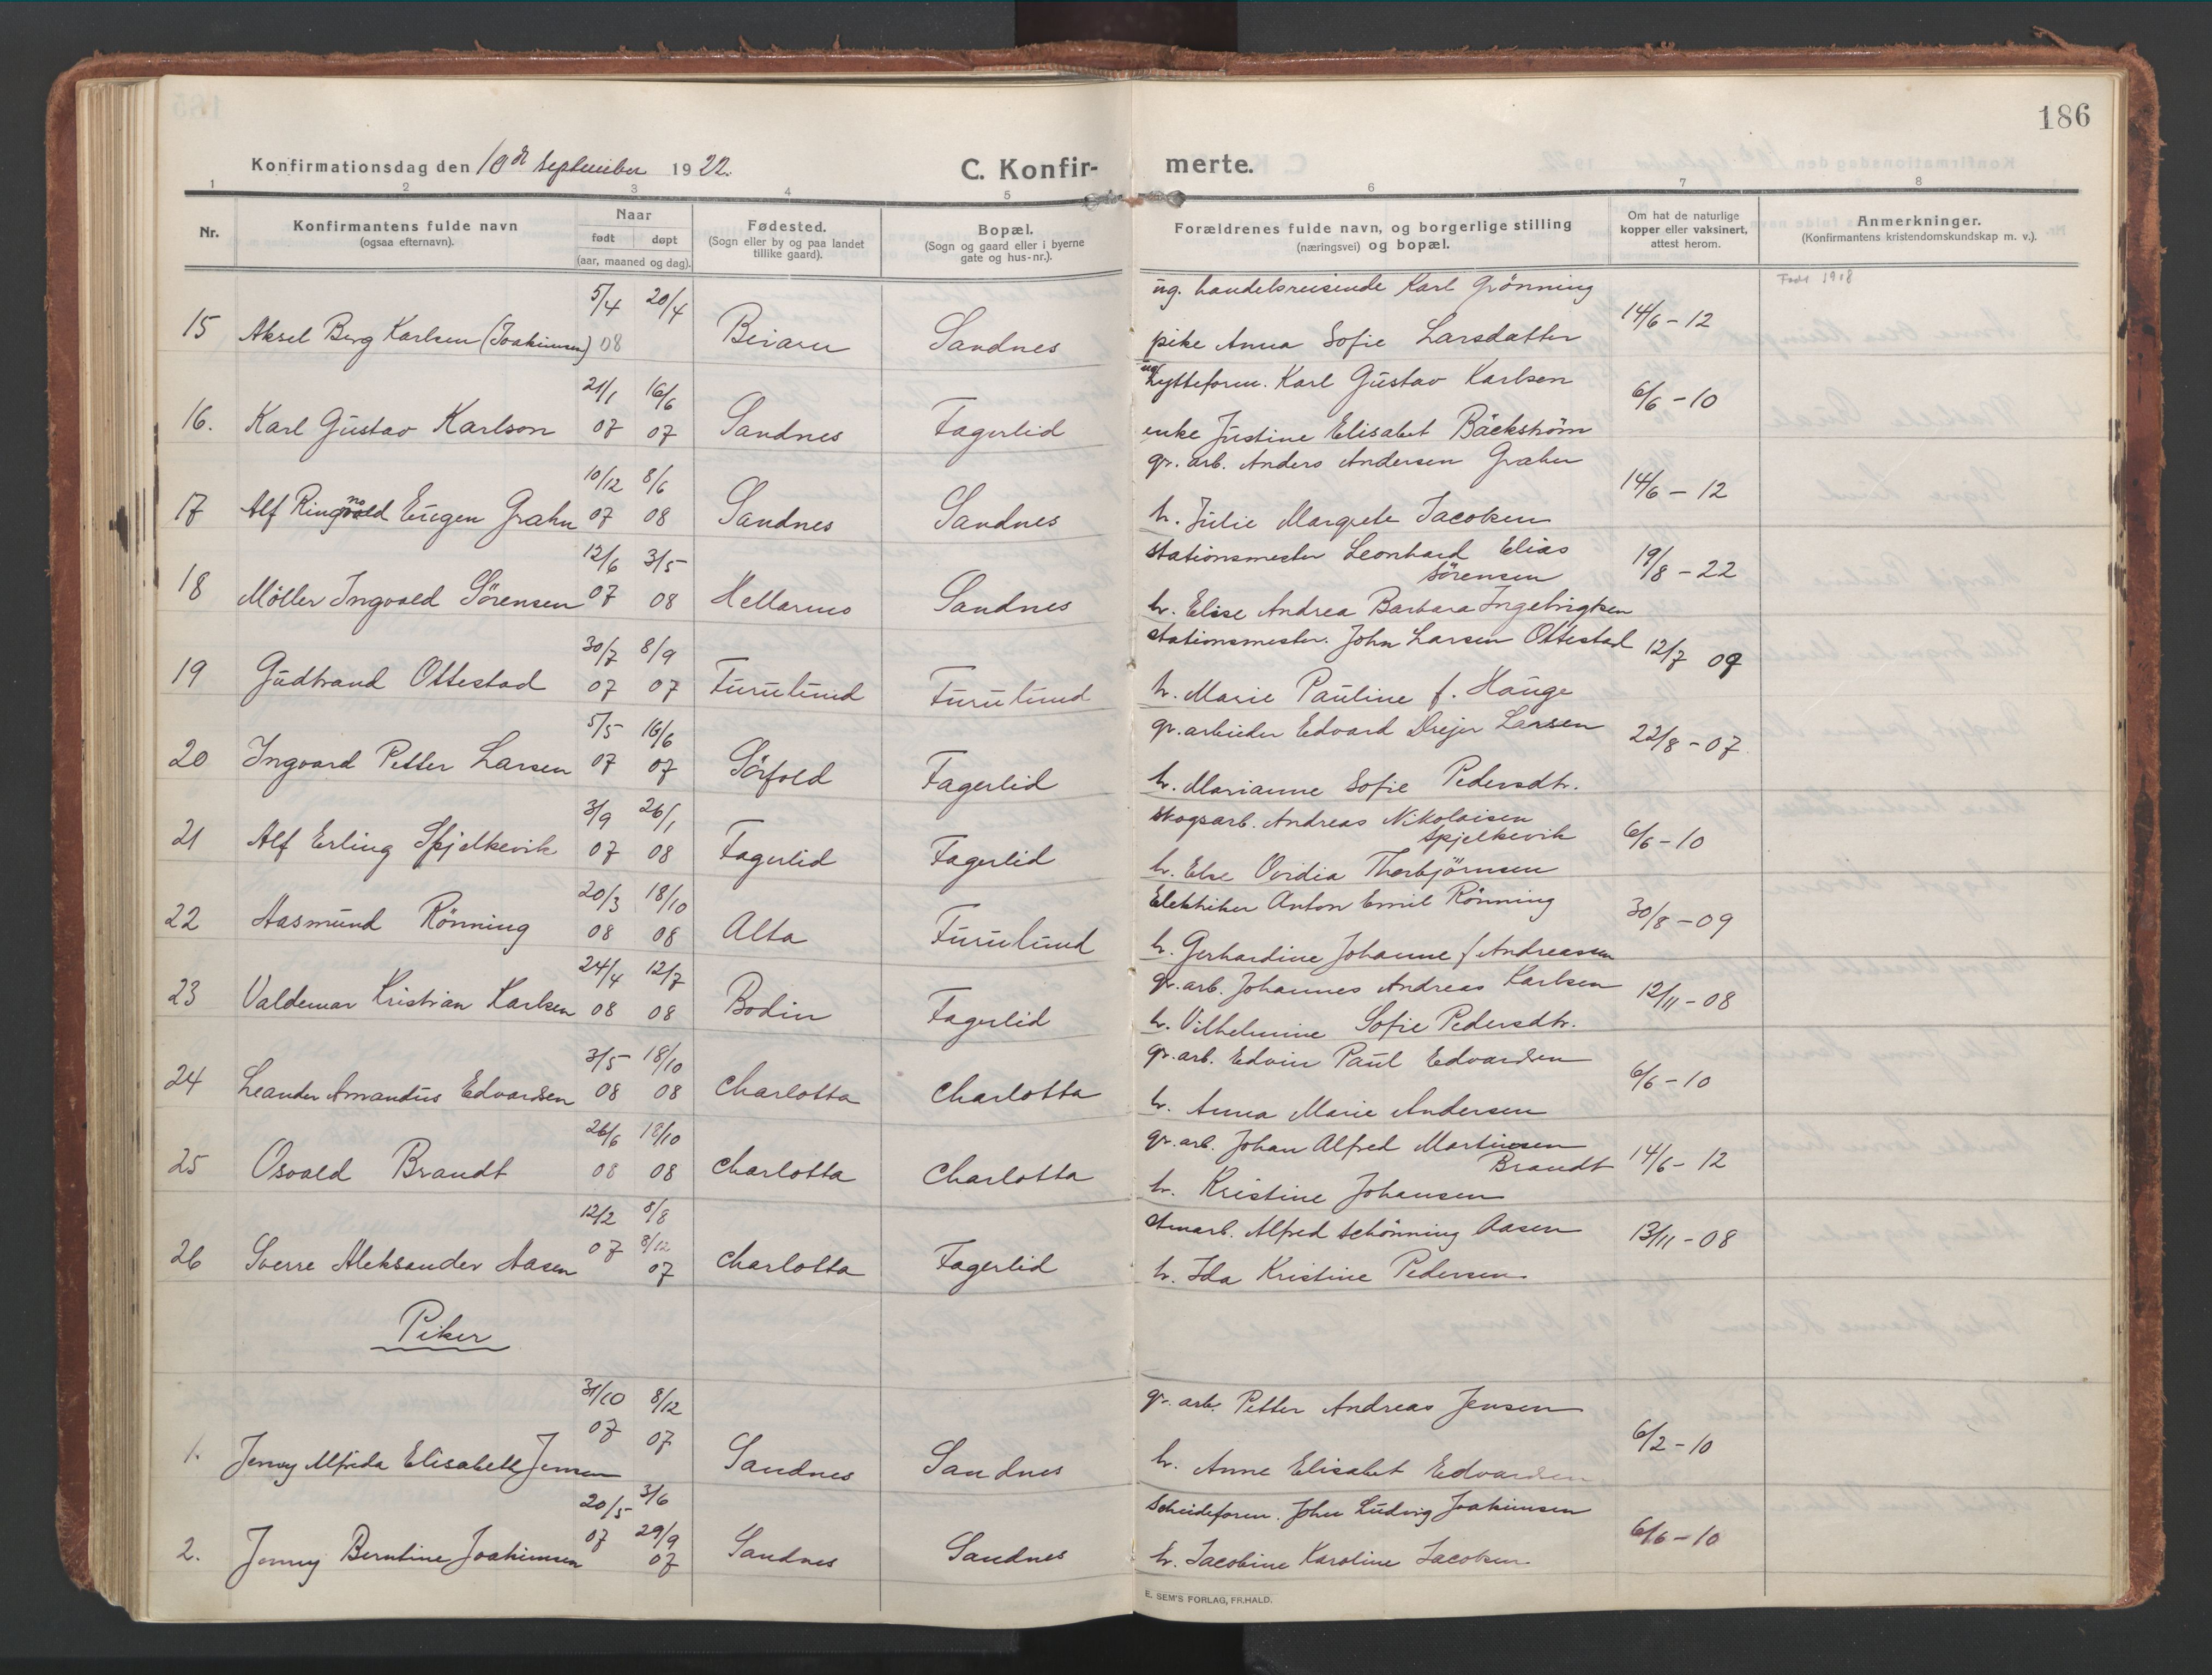 186
Konfirmationsdag den 10de september 1922.
C. Konfir-
merte.
1 2 3 4 5 6 7 8
Nr.
Konfirmantens fulde navn
(ogsaa efternavn).
Naar
født døpt
(aar, maaned og dag).
Fødested.
(Sogn eller by og paa landet
tillike gaard).
Bopæl.
(Sogn og gaard eller i byerne
gate og hus-nr.).
Forældrenes fulde navn, og borgerlige stilling
(næringsvei) og bopæl.
Om hat de naturlige
kopper eller vaksinert,
attest herom.
Anmerkninger.
(Konfirmantens kristendomskundskap m. v.).
5/4 20/4 ug. handelsreisende Karl Grönning 14/6 - 12
15 Aksel Berg Karlsen (Joakimsen) 08 Beiarn Sandnes pike Anna Sofie Larsdatter
21/1 16/6 ug. hytteform. Karl Gustav Karlsen 6/6 - 10
16. Karl Gustav Karlson 07 07 Sandnes Fagerlid enke Justine Elisabet Bäckström
10/12 8/6 gr. arb. Anders Andersen Grahn 14/6 - 12
17 Alf Eugen Grahn 07 08 Sandnes Sandnes h. Julie Margrete Jacobsen
12/6 3/5 stationsmester Leonhard Elias
Sörensen 19/8 - 22
18 Möller Ingvald Sörensen 07 08 Hellarmo Sandnes h. Elise Andrea Barbara Ingebrigtsen
30/7 8/9 stationsmester. John Larsen Ottestad 12/7 09
19 Gudbrand Ottestad 07 07 Furulund Furulund h. Marie Pauline f. Hauge
5/5 16/6 gr. arbeider Edvard Drejer Larsen 22/8 - 07
20 Ingvard Petter Larsen 07 07 Sörfold Fagerlid h. Marianne Sofie Pedersdtr.
3/9 26/1 skogsarb. Andreas Nikolaisen
Spjelkevik 6/6 - 10
21 Alf Erling Spjelkevik 07 08 Fagerlid Fagerlid h. Else Ovidia Thorbjörnsen
20/3 18/10 Elektriker Anton Emil Rönning 30/8 - 09
22 Aasmund Rönning 08 08 Alta Furulund h. Gerhardine Johanne f Andreasen
24/4 12/7 gr. arb. Johannes Andreas Karlsen 12/11 - 08
23 Valdemar Kristian Karlsen 08 08 Bodin Fagerlid h. Vilhelmine Sofie Pedersdtr.
3/5 18/10 gr. arb. Edvin Paul Edvardsen 6/6 - 10
24 Leander Amandus Edvardsen 08 08 Charlotta Charlotta h. Anna Marie Andersen
26/6 18/10 gr. arb. Johan Alfred Martinsen
Brandt 14/6 - 12
25 Osvald Brandt 08 08 Charlotta Charlotta h. Kristine Johansen
12/2 8/8 Alfred Schönning Aasen 13/11 - 08
26 Sverre Aleksander Aasen 07 8/12 07 Charlotta Fagerlid h. Ida Kristine Pedersen
Piker
31/10 8/12 gr. arb. Petter Andreas Jensen 6/2 - 10
1. Jenny Alfrida Elisabeth Jensen 07 07 Sandnes Sandnes h. Anne Elisabet Edvardsen
20/5 3/6 Scheideform. John Ludvig Joakimsen 6/6 - 10
2. Jenny Berntine Joakimsen 07 29/9 07 Sandnes Sandnes h. Jacobine Karoline Jacobsen
E. SEM'S FORLAG, FR.HALD.